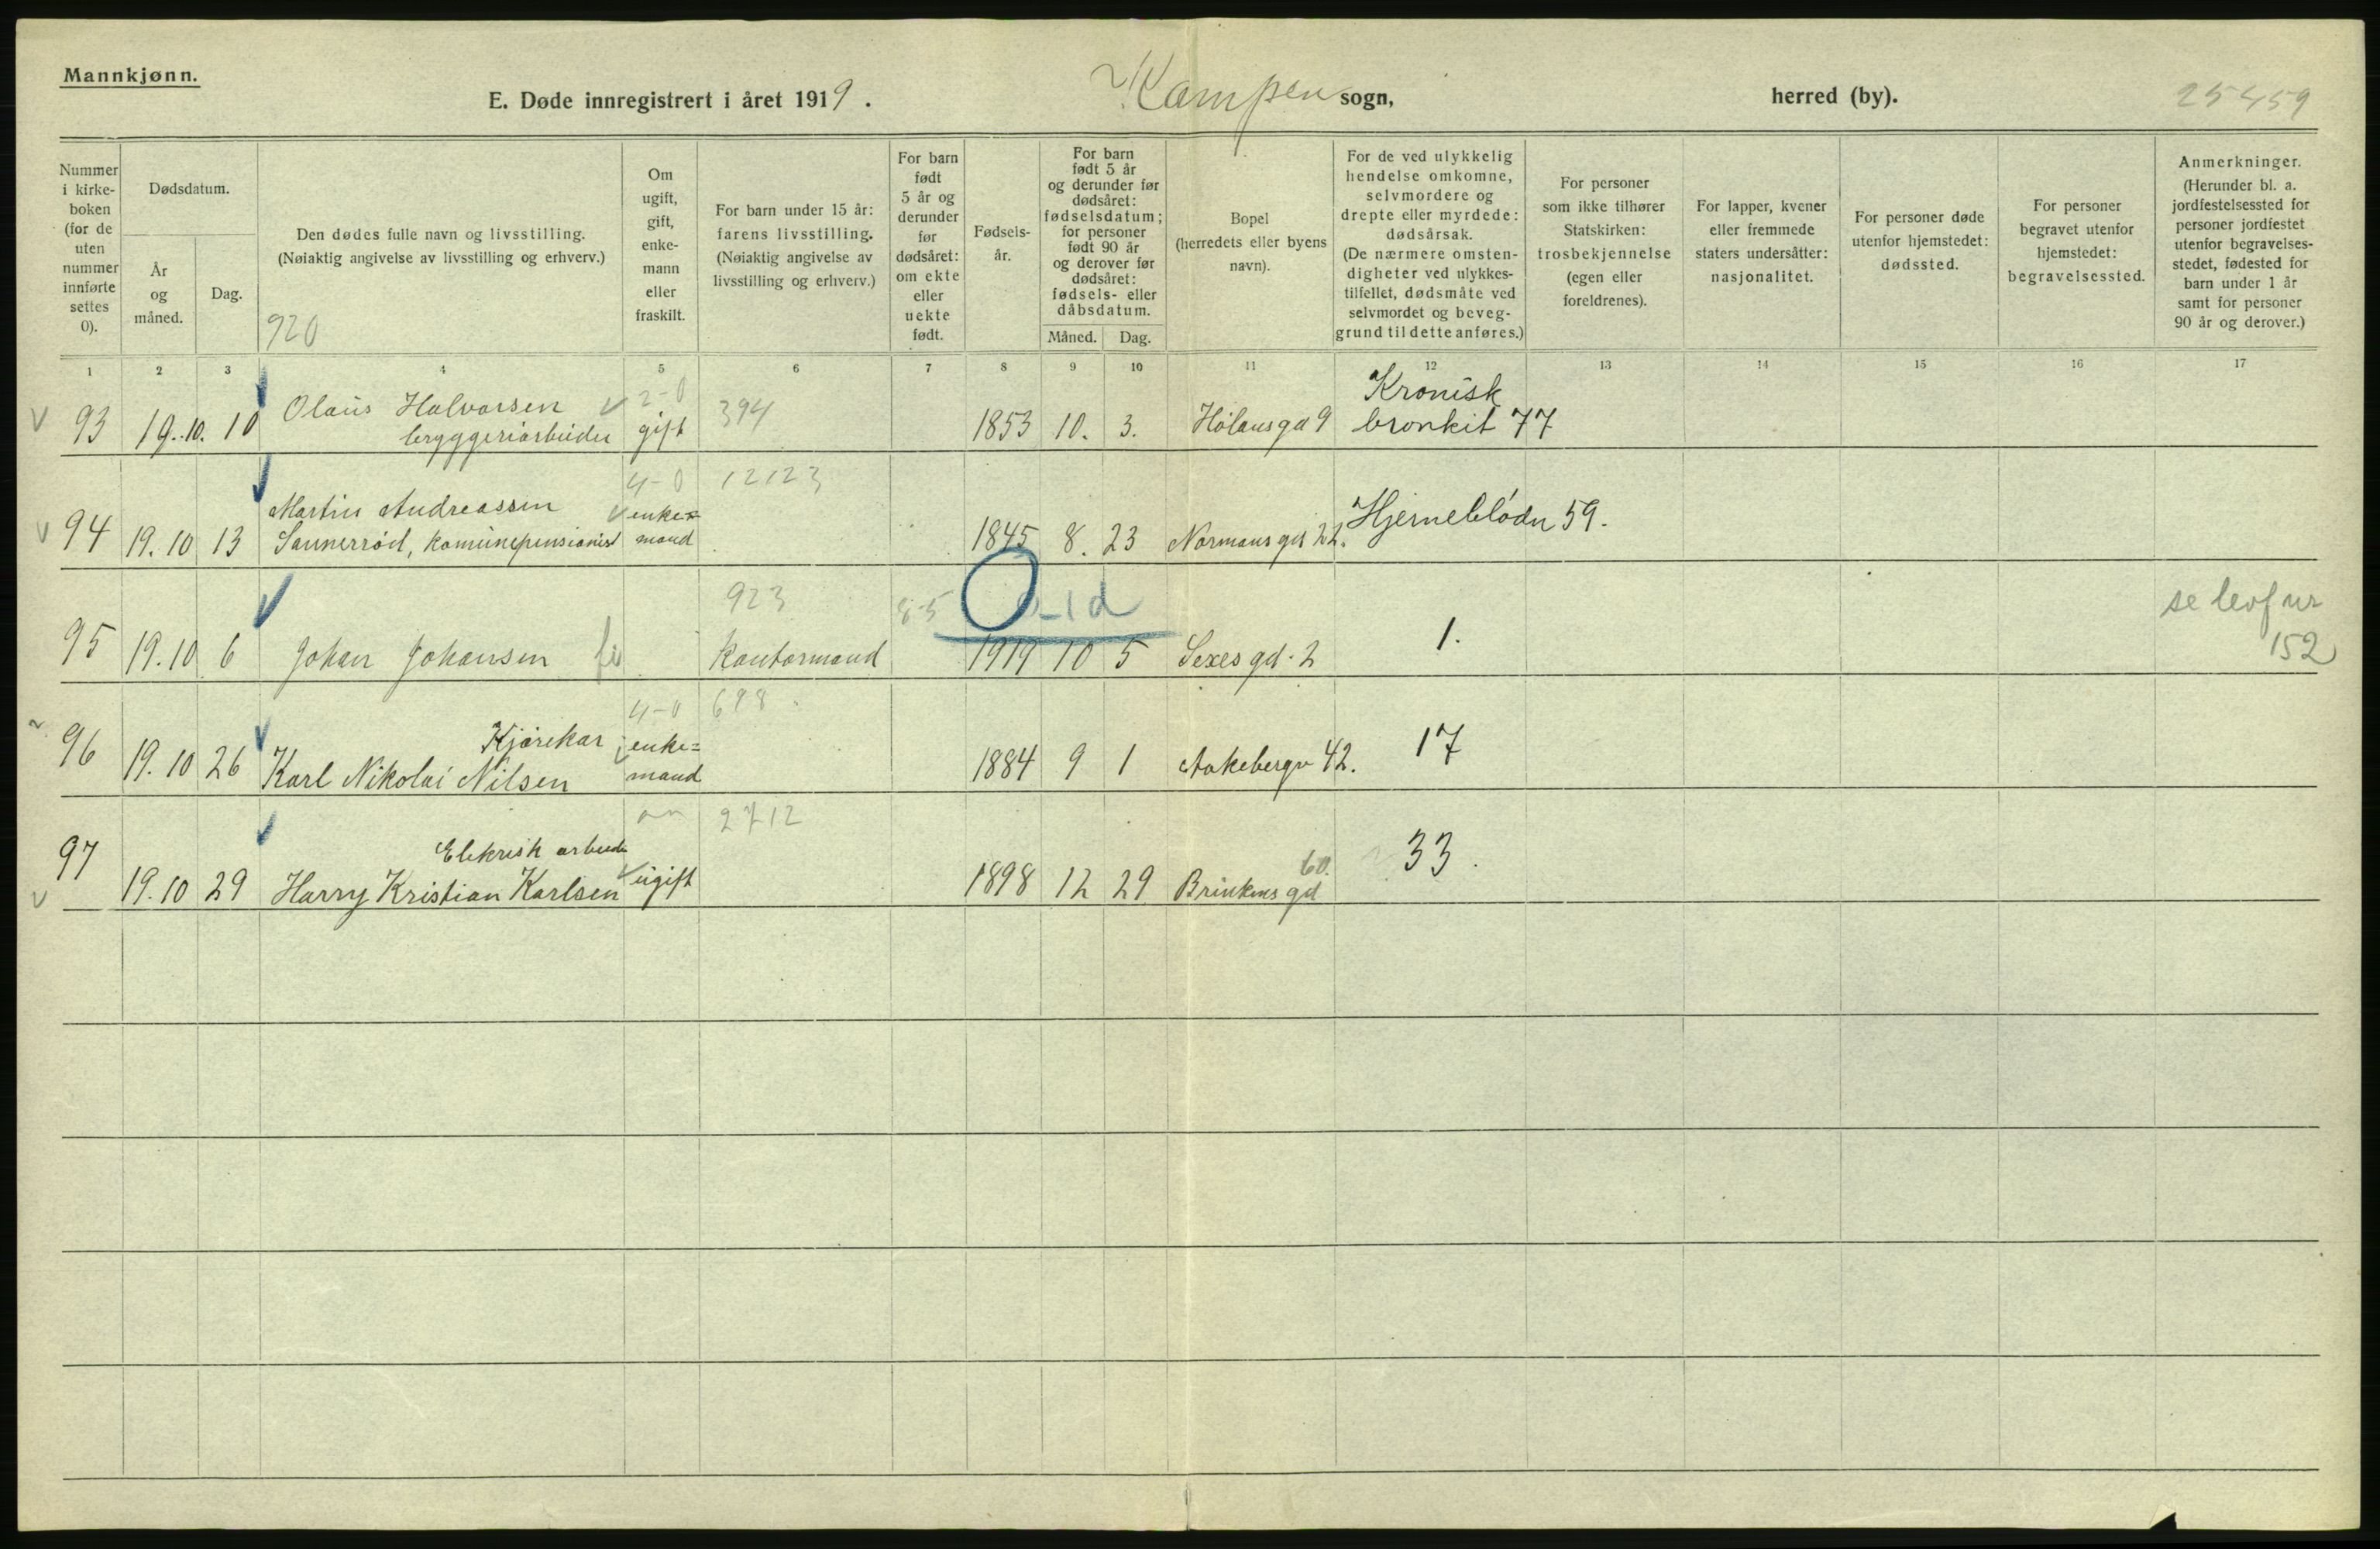 Mannkjønn.
E. Døde innregistrert i året 1919.
Kampen sogn,
herred (by).
25459
Nummer i kirke- boken (for de uten nummer innførte settes 0).
Dødsdatum.
År og måned.
Dag.
Den dødes fulle navn og livsstilling.
(Nøiaktig angivelse av livsstilling og erhverv.)
920
Om ugift, gift, enke- mann eller fraskilt.
For barn under 15 år: farens livsstilling. (Nøiaktig angivelse av livsstilling og erhverv.)
For barn født 5 år og derunder før dødsåret: om ekte eller uekte født.
Fødsels- år.
For barn født 5 år og derunder før dødsåret: fødselsdatum; for personer født 90 år og derover før dødsåret: fødsels- eller dåbsdatum.
Måned. Dag.
Bopel (herredets eller byens navn).
For de ved ulykkelig hendelse omkomne, selvmordere og drepte eller myrdede: dødsårsak. (De nærmere omsten- digheter ved ulykkes- tilfellet, dødsmåte ved selvmordet og beveg- grund til dette anføres.)
For personer som ikke tilhører Statskirken: trosbekjennelse (egen eller foreldrenes).
For lapper, kvener eller fremmede staters undersåtter: nasjonalitet.
For personer døde utenfor hjemstedet: dødssted.
For personer begravet utenfor hjemstedet: begravelsessted.
Anmerkninger. (Herunder bl. a. jordfestelsessted for personer jordfestet utenfor begravelses- stedet, fødested for barn under 1 år samt for personer 90 år og derover.)
1 2 3 4 5 6 7 8 9 10 11 12 13 14 15 16 17
2-0 394 Kronisk
93 19.10. 10 Olaus Halvorsen gift 1853 10. 3. Hølansgd 9 bronkit 77
bryggeriarbeider
4-0 12123
Martin Andreassen enke=
94 19.10 13 Sannerrød, komunepensionist mand 1845 8. 23 Normansgd 22. Hjerneblødn 59.
923 8-5 0-1d se levf nr
95 19.10 6 Johan Johansen Kontormand 1919 10 5 Sexesgd. 2 1. 152
4-0 698
Kjørekar enke=
96 19.10 26 Karl Nikolai Nilsen mand 1884 9 1 Aakebergv 42. 17
2712
Elekrisk arbeider
97 19.10 29 Harry Kristian Karlsen ugift 1898 12 29 Brinkens gd 60. 33.